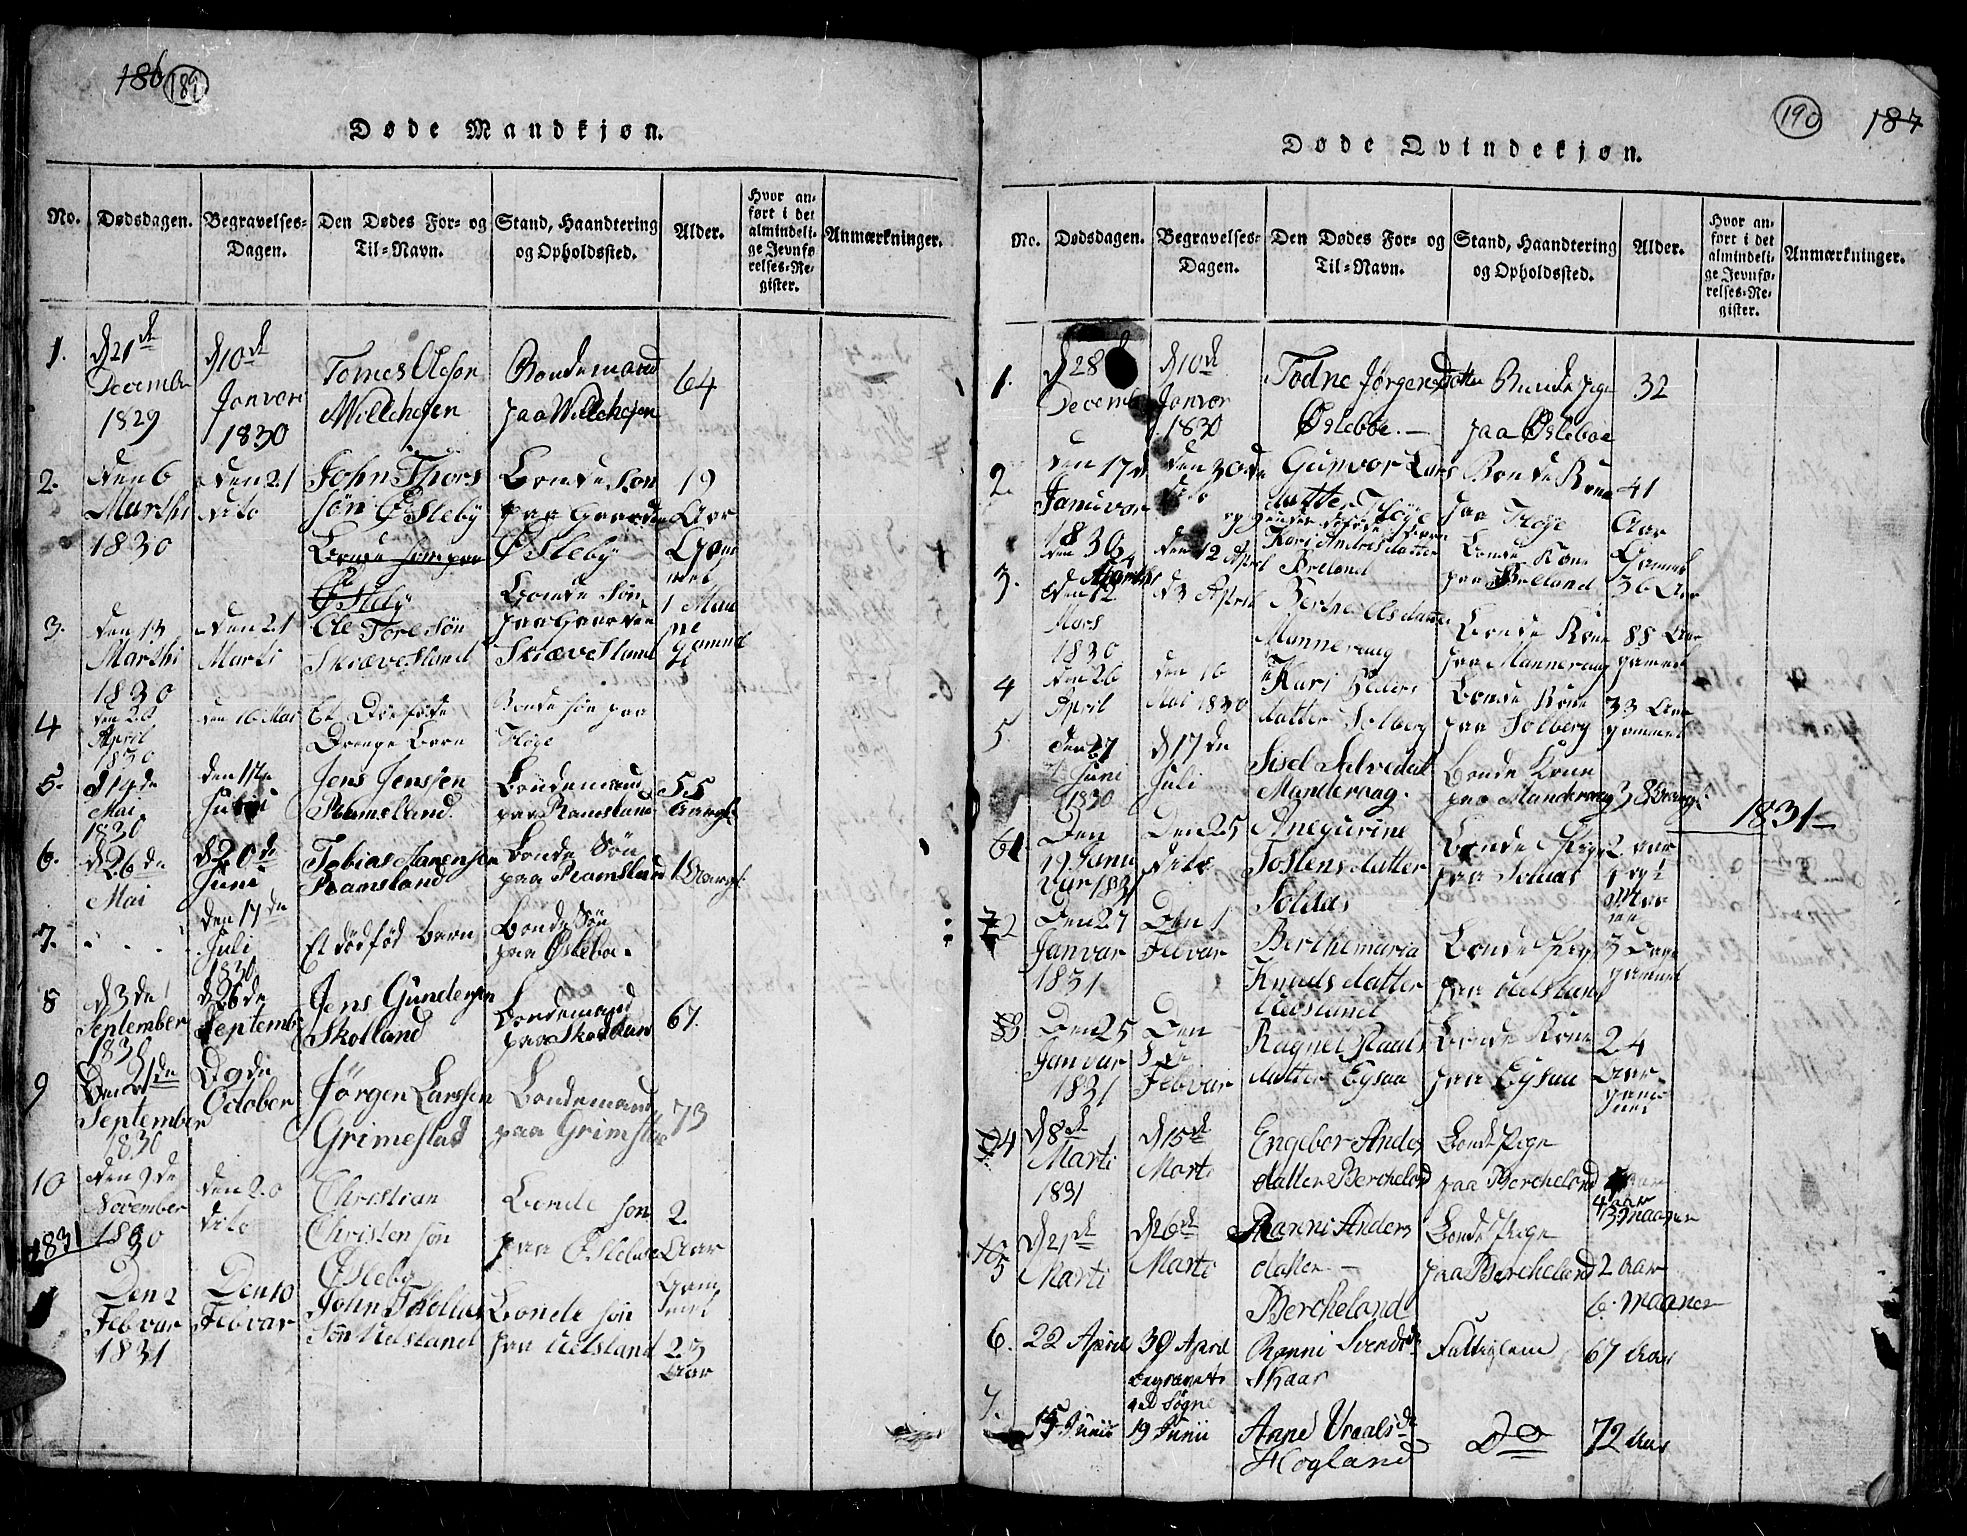 186 189
Døde Mandkjøn.
No. Dødsdagen. Begravelses-Dagen. Den Dødes For- og Til-Navn. Stand, Haandtering og Opholdssted. Alder. Hvor anført i det almindelige Jevnførelses-Register. Anmærkninger.
1. d 21de December 1829 d 10de Janvor 1830 Tomes Olesøn Millehejen Bondemand paa Willehejen 64
2. den 6 Marthi 1830 den 21 dito John Thors søn Øsleby Bonde søn paa Gaarden Øsleby 19 Aar Gammel
Bonde søn paa Øsleby
3. den 13 Marthi 1830 den 21 Marti Ole Tore Søn Skræveslamd Bonde Søn paa Gaarden Skræveslamd 1 Maane gammel
4 den 26 April 1830 den 16 Mai Et Dødføde Drenge Barn Bonde søn paa Fløge
5. d 14de Mai 1830 den 17de Juli Jens Jenssen Ramsland. Bondemand paa Ramsland 55 Aargl.
6. d 26de Mai d 20de Juni Tobias Aanensen Raamsland Bonde Søn paa Raamsland 1 Aargl.
7. den 17de Juli 1830 Et dødfød Barn Bonde Søn paa Øsleboe.
8 d 3de September 1830 d 26de September Jens Gundersen Skolland Bondemand paa Skolland 67.
9 Den 21de September 1830 D 9de October Jörgen Larssen Grimestad Bondemand paa Grimstad 73
10 den 9de November 1830 den 20 dito Christian Christensøn Øsleby Bonde søn paa Øsleboe 2 Aar Gammel
1831
Den 2 Febvar 1831 Den 10 Febvar John Thollus Søn Udsland Bonde søn paa Udsland 23 Aar
190 187
Døde Qvindekjøn.
No. Dødsdagen. Begravelses-Dagen. Den Dødes For- og Til-Navn. Stand, Haandtering og Opholdssted. Alder. Hvor anført i det almindelige Jevnførelses-Register. Anmærkninger.
1. d 28 Decemb d 10de Janvor 1830 Todne Jørgensdatter Øsleboe. Bonde Pige paa Øsleboe 32
2. den 17de Januvar 1830 den 30de dito Gunvor Lars datter Fløge Bonde Kone paa Fløge 41 Aar Gammel
og hendes dødfødte Barn
den 4 Marthi den 12 April Kari Andrisdatter Breland Bonde Kone paa Breland 36 Aar
3. Den 12 Mars 1830 d 3 April Berthe Olsdatter Manneraag Bonde Kone paa Manneraag 85 Aar gammel
4 den 26 April den 16 Mai 1830 Kari Peders datter Solberg Bonde Kone paa Solberg 33 Aar gammel
5. den 27 Juni 1830 d 17de Juli Sisel Salvedat Manderaag. Bonde Kone paa Manderaag 38 Aargl.
1831
61 Den 19 Januvar 1831 Den 25 dito Anegurine Tostensdatter Soldas Bonde Pige paa Soldas 2 aar
72 Den 27 Janvar 1831 Den 1 Febvar Berthemaria Knudsdatter Udsland Bonde Pige paa Udsland 3 Dage gammel
83 Den 25 Janvar 1831 Den 5de Febvar Ragnel Staals datter Eysaa Bonde Kone paa Eysaa 24 Aar gammel
4 d 8de Marti 1831 d 15de Marti Engebor Anders datter Bercheland Bonde Pige paa Bercheland 4 aar 3 Maaner
5 d 21de Marti d 26de Marti Ranni Anders datter Bercheland Bonde Pige paa Bercheland 2 aar 6. Maaner
6. 22 April 30 April begravet ved Søgne Rønni Svendsd Skaar Fattiglem 67 Aar
7. 15 Junii 19 Junii Anne Vraalsd Hogland Do 72 Aar